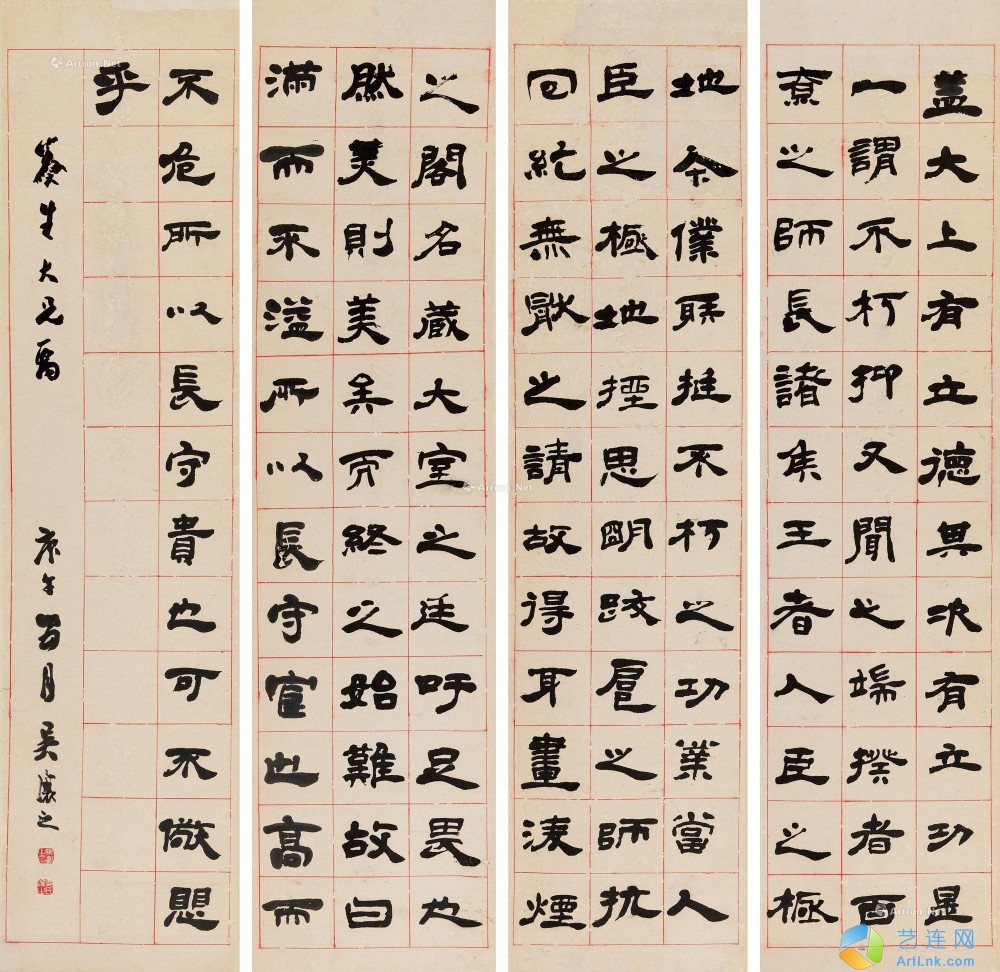 蓋大上有立德其次有立功是
一謂不朽抑又聞之端揆者百
寮之師長諸侯王者人臣之極
地今僕射挺不朽之功業當人
臣之極地挫思明跋扈之師抗
回紇無厭之請故得耳畫凌煙
之閣名藏大室之廷吁足畏也
然美則美矣而終之始難故曰
滿而不溢所以長守富也高而
不危所以長守貴也可不儆懼
乎
葵生大兄屬
庚午 月吴讓之
Artron.Net
Artron.Net
Artron.Net
艺连网
ArtLnk.com